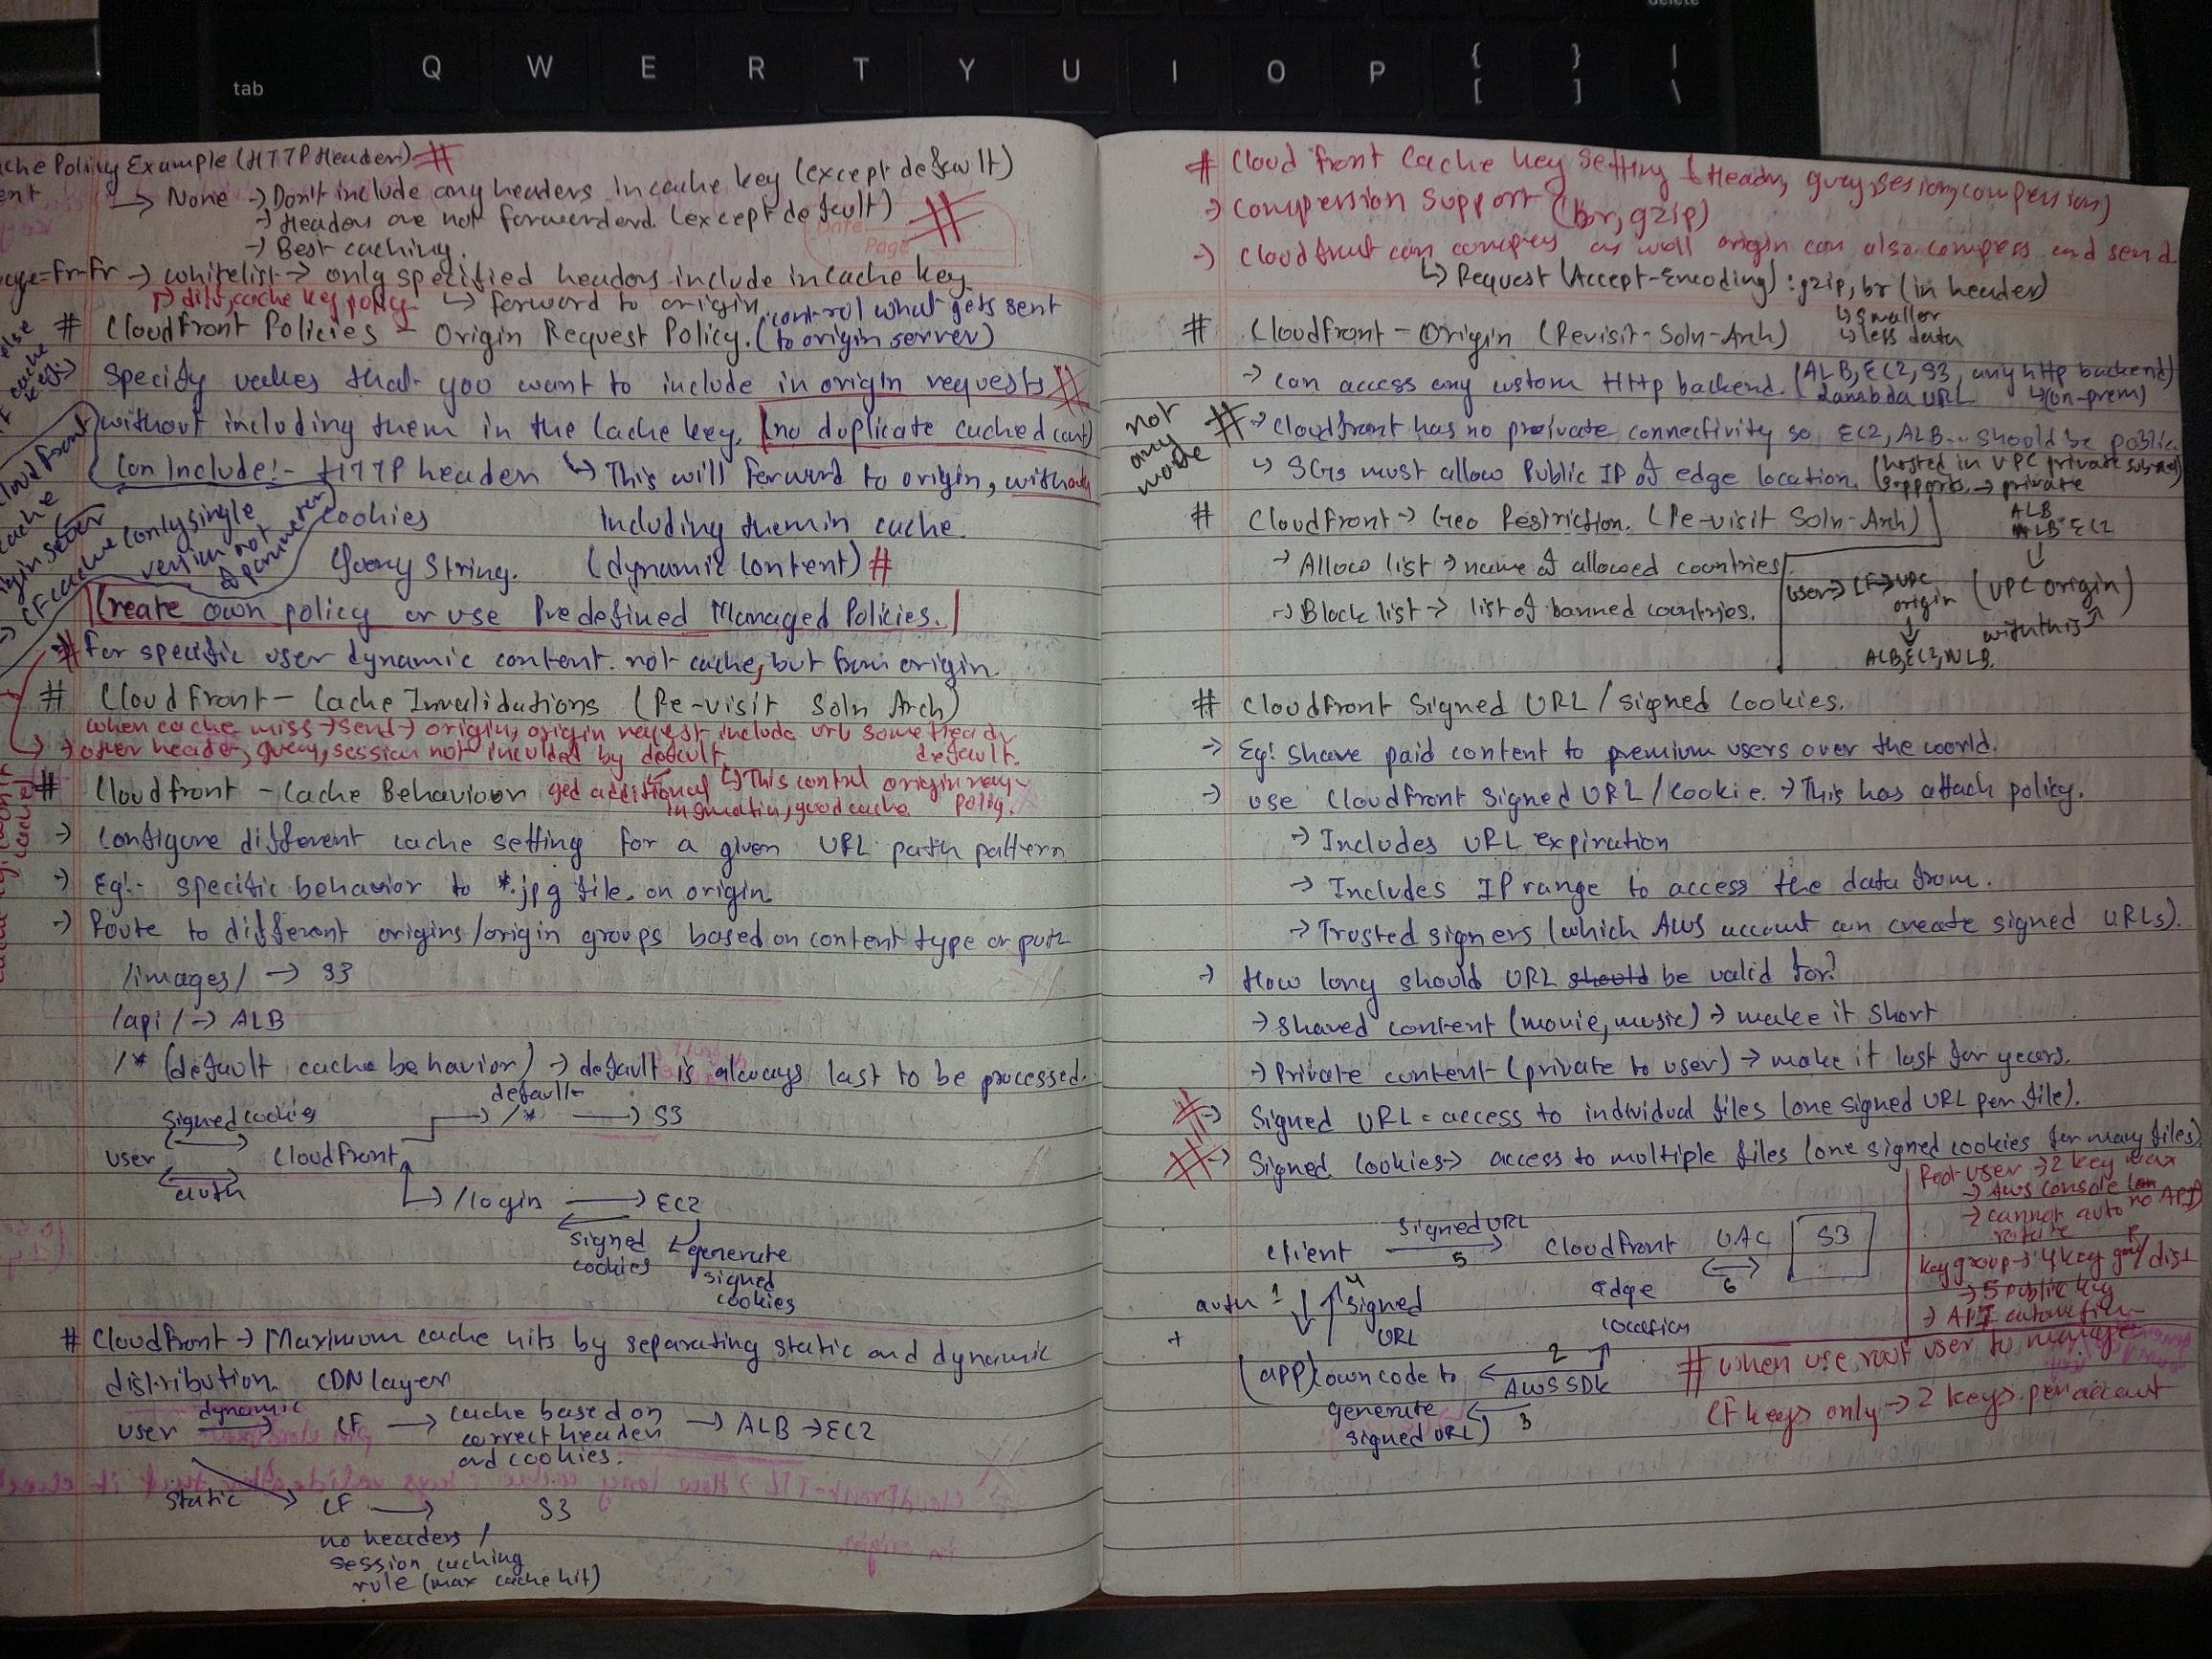 tab
Q W E R T Y U I O P { [ } ] | \
delete
ache Policy Example (HTTP Header) #
ent → None → Don't include any headers in cache key (except default)
→ Headers are not forwarderd. (except default) #
Date
Page
→ Best caching.
age=Fr-Fr → whitelist → only specified headers include in cache key
↳ forward to origin
cache key policy
control what gets sent
# CloudFront Policies - Origin Request Policy. (to origin server)
Specify values that you want to include in origin requests #
without including them in the Cache key. (no duplicate cached cont)
Can Include:- HTTP header ↳ This will forward to origin, without
Cookies Including them in cache.
Query String. (dynamic content) #
CF cache only single
version not
Create own policy or use Predefined Managed Policies.
# For specific user dynamic content. not cache, but from origin
# CloudFront - Cache Invalidations (Re-visit Soln Arch)
when cache miss → send → origin, origin request include url some
default.
→ other header, query, session not included by default.
# CloudFront - Cache Behaviour
get additional ↳ This control origin
policy.
→ Configure different cache setting for a given URL path pattern
→ Eg:- specific behavior to *.jpg file. on origin.
→ Route to different origins/origin groups based on content type or path
/images/ → S3
/api/ → ALB
/* (default cache behavior) → default is always last to be processed.
default
→ /* → S3
Signed cookie
User CloudFront
auth
→ /login → EC2
signed
cookies
generate
signed
cookies
# CloudFront → Maximum cache hits by separating static and dynamic
distribution. CDN layer
dynamic
user → CF → cache based on
correct header
and cookies. → ALB → EC2
static
CF → S3
no headers /
session caching
rule (max cache hit)
# Cloud front Cache key Setting (Header, query, session, compression)
→ Compression Support (br, gzip)
→ Cloudfront can compress as well origin can also compress and send
↳ Request (Accept-Encoding): gzip, br (in header)
↳ smaller
↳ less data
# CloudFront - Origin (Revisit-Soln-Arch)
→ can access any custom Http backend. (ALB, EC2, S3, any http backend)
Lambda URL ↳ (on-prem)
not
any
more
# → Cloudfront has no preivate connectivity so EC2, ALB... should be public
↳ SGs must allow Public IP of edge location. (hosted in VPC private subnet)
supports → private
ALB
EC2
# CloudFront → Geo Restriction. (Re-visit Soln-Arch)
→ Allow list → name of allowed countries.
→ Block list → list of banned countries.
User → CF → VPC
origin
(VPC origin)
with this
ALB, EC2, NLB.
# CloudFront Signed URL / signed Cookies.
→ Eg: Share paid content to premium users over the world.
→ use CloudFront Signed URL / Cookie. → This has attach policy.
→ Includes URL expiration
→ Includes IP range to access the data from.
→ Trusted signers (which AWS account can create signed URLs).
→ How long should URL should be valid for?
→ Shared content (movie, music) → make it short
→ Private content (private to user) → make it last for years.
# → Signed URL = access to individual files (one signed URL per file).
# → Signed Cookies → access to multiple files (one signed cookies for many files)
Root user → 2 key max
→ AWS console no API
→ cannot auto
rotate
Key group → 4 key / dist
→ 5 public key
→ API automation
Client Signed URL 5 CloudFront OAC 6 S3
edge
location
auth 1 4 signed
URL
+
(app) (own code to
generate
signed URL)
2
AWS SDK
3
# when use root user to manage
CF keys only → 2 keys per account